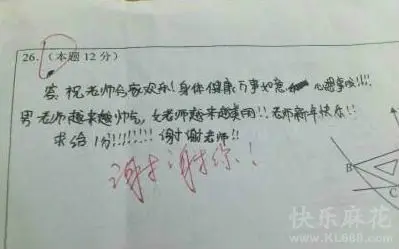 26. (本题 12 分)
答:祝老师合家欢乐!身体健康万事如意 心想事成!!!!
男老师越来越帅气,女老师越来越美丽!!老师新年快乐!!
求给1分!!!!!!!!谢谢老师!!
谢谢你!
B
C
快乐麻花
www.KL688.com